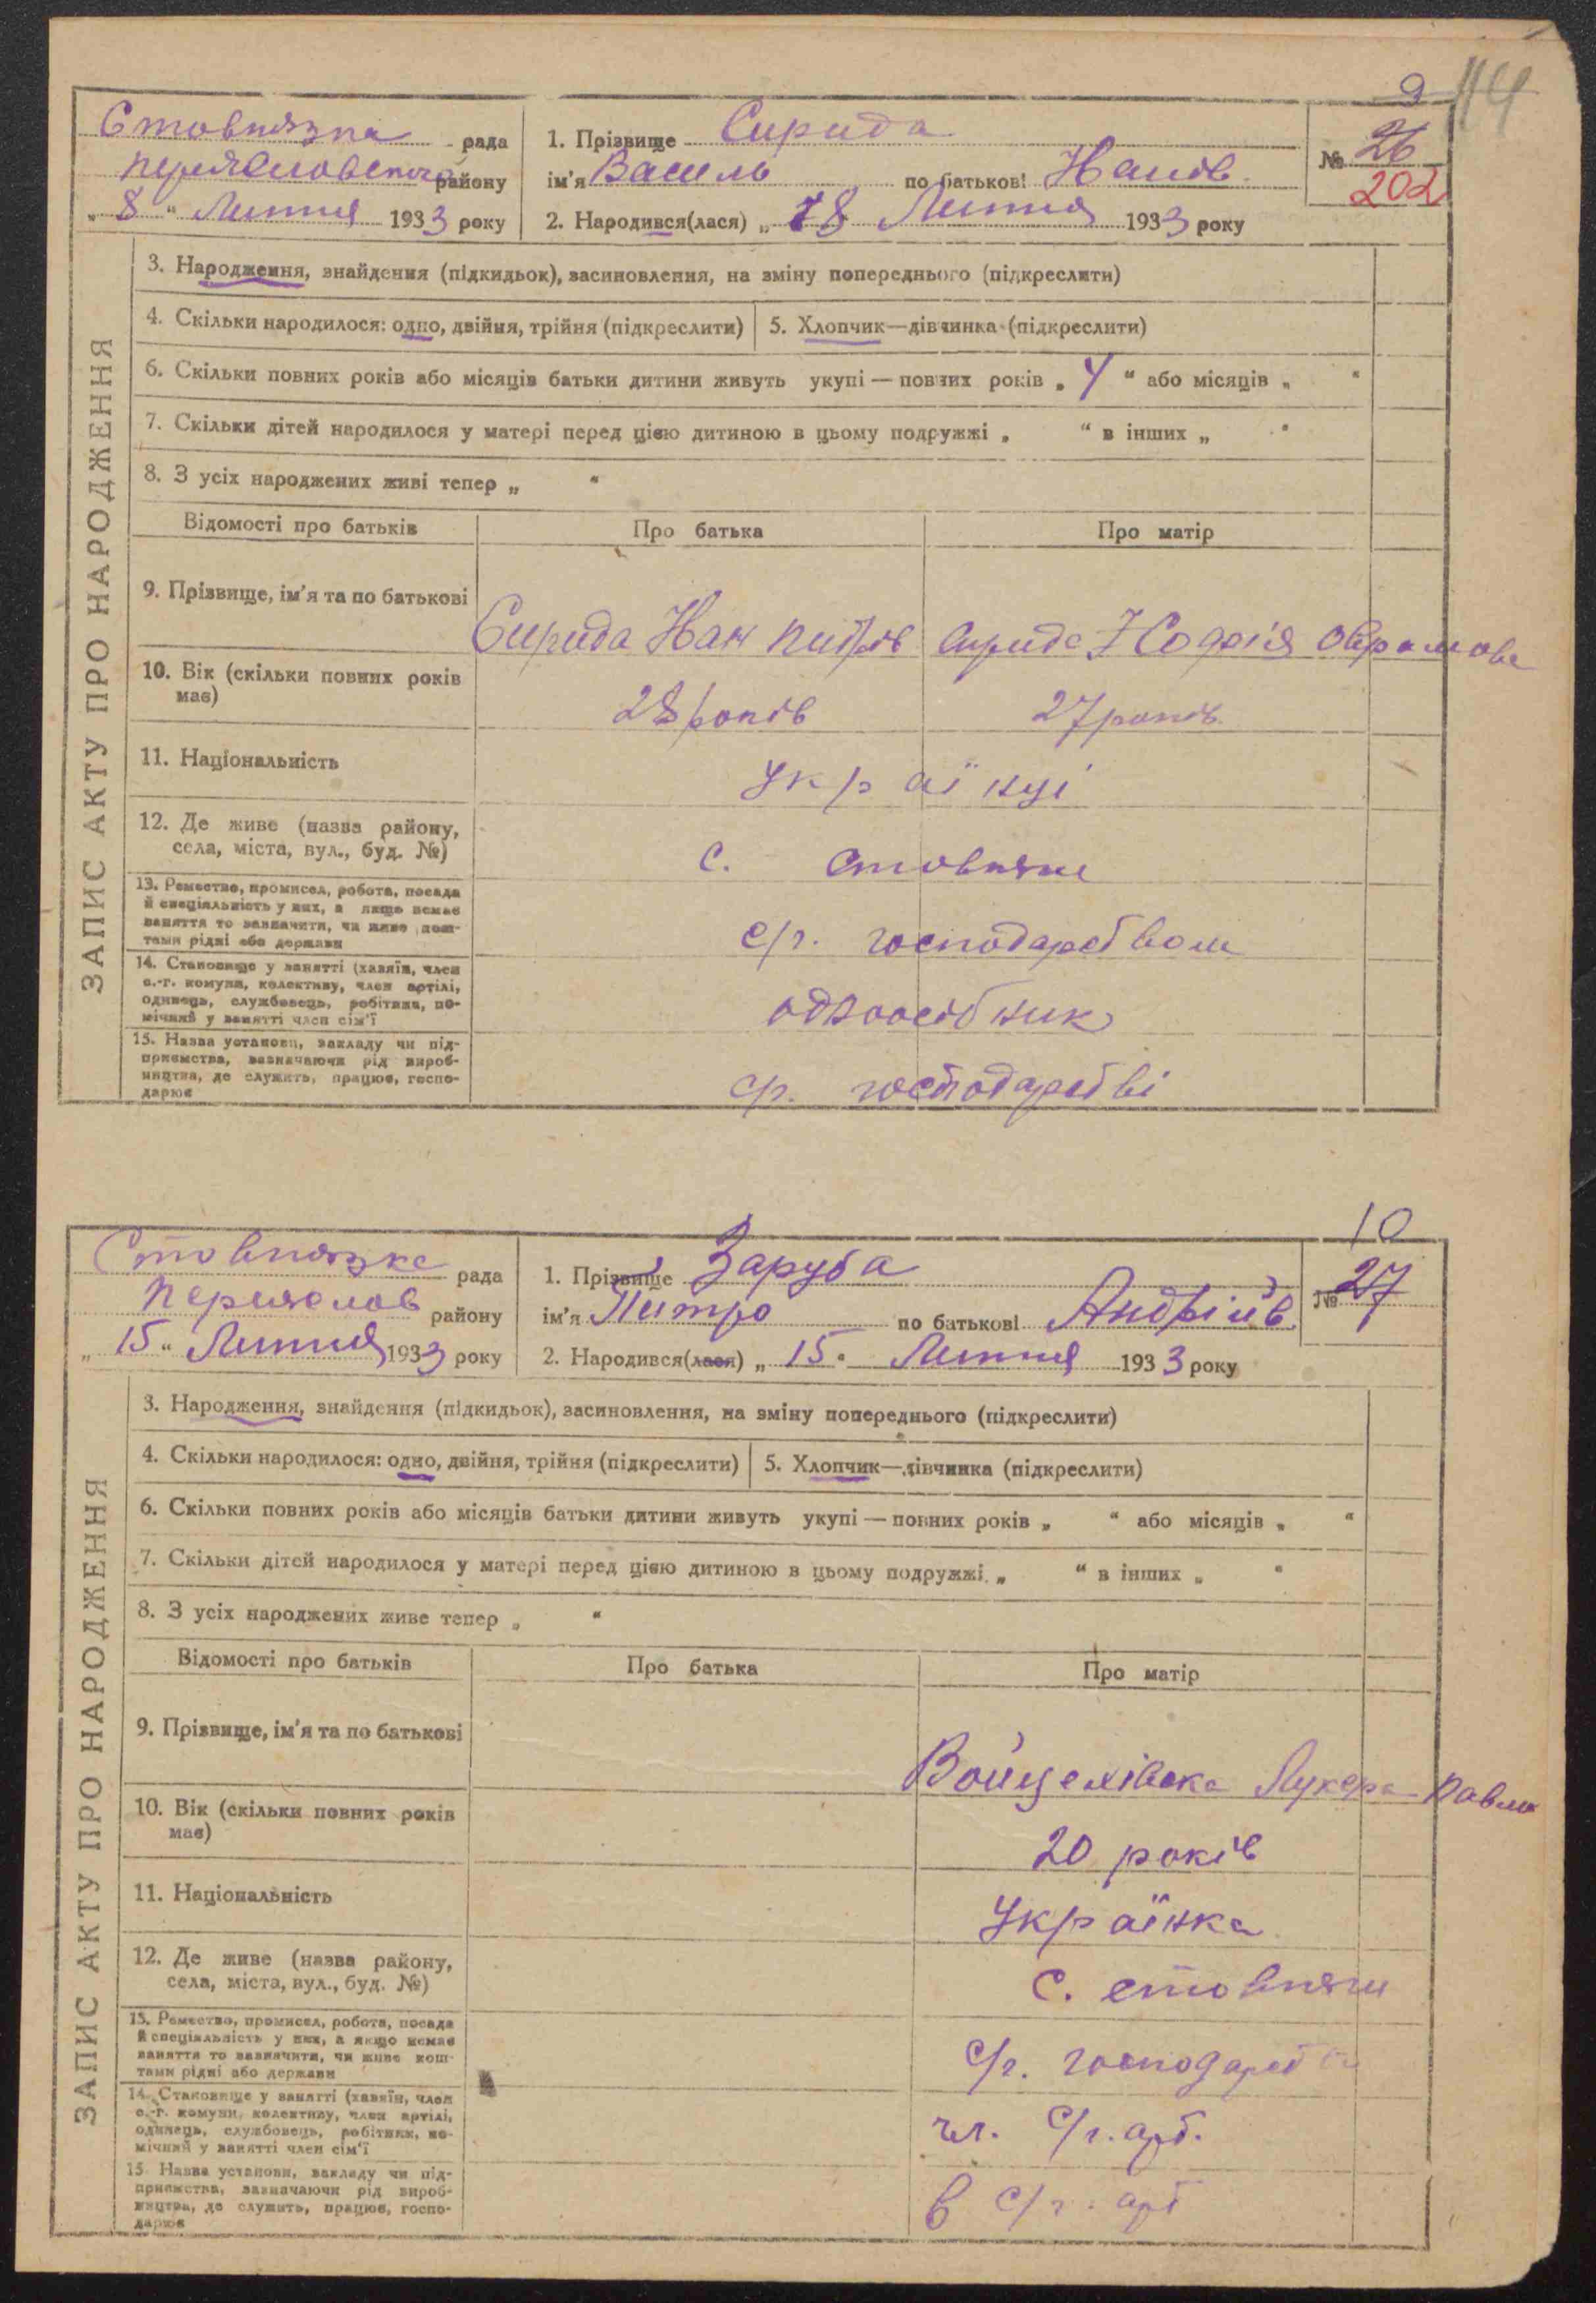 9 114
Стовпязка рада
Переяславського району
„ 8 “ Липня 1933 року
1. Прізвище Сирида
ім'я Василь по батькові Іванів
2. Народився(лася) „ 8 Липня 1933 року
№ 26
202
ЗАПИС АКТУ ПРО НАРОДЖЕННЯ
3. Народження, знайдення (підкидьок), засиновлення, на зміну попереднього (підкреслити)
4. Скільки народилося: одно, двійня, трійня (підкреслити)
5. Хлопчик—дівчинка (підкреслити)
6. Скільки повних років або місяців батьки дитини живуть укупі — повних років „ 4 “ або місяців „ “
7. Скільки дітей народилося у матері перед цією дитиною в цьому подружжі „ “ в інших „ “
8. З усіх народжених живі тепер „ “
Відомості про батьків
Про батька
Про матір
9. Прізвище, ім'я та по батькові
Сирида Іван Питрів
Сирида Софія Оврамова
10. Вік (скільки повних років має)
28 років
27 років
11. Національність
Українці
12. Де живе (назва району, села, міста, вул., буд. №)
с. Стовпяги
13. Ремество, промисел, робота, посада й спеціяльність у них, а якщо немає заняття то зазначити, чи живе коштами рідні або держави
с/г. господарством
14. Становище у занятті (хазяїн, член с.-г. комуни, колективу, член артілі, одинець, службовець, робітник, помічний у занятті член сім'ї
одноосібник
15. Назва установи, закладу чи підприємства, зазначаючи рід виробництва, де служить, працює, господарює
с/г. господарстві
10
Стовпязка рада
Переяслов району
„ 15 “ Липня 1933 року
1. Прізвище Заруба
ім'я Питро по батькові Андріїв
2. Народився(лася) „ 15 “ Липня 1933 року
№ 27
ЗАПИС АКТУ ПРО НАРОДЖЕННЯ
3. Народження, знайдення (підкидьок), засиновлення, на зміну попереднього (підкреслити)
4. Скільки народилося: одно, двійня, трійня (підкреслити)
5. Хлопчик—дівчинка (підкреслити)
6. Скільки повних років або місяців батьки дитини живуть укупі — повних років „ “ або місяців „ “
7. Скільки дітей народилося у матері перед цією дитиною в цьому подружжі „ “ в інших „ “
8. З усіх народжених живе тепер „ “
Відомості про батьків
Про батька
Про матір
9. Прізвище, ім'я та по батькові
Войцехівска Лукера Павл
10. Вік (скільки повних років має)
20 років
11. Національність
Українка
12. Де живе (назва району, села, міста, вул., буд. №)
С. Стовпяги
13. Ремество, промисел, робота, посада й спеціяльність у них, а якщо немає заняття то зазначити, чи живе коштами рідні або держави
с/г. господарств
14. Становище у занятті (хазяїн, член с.-г. комуни, колективу, член артілі, одинець, службовець, робітник, помічний у занятті член сім'ї
чл. с/г. арт.
15. Назва установи, закладу чи підприємства, зазначаючи рід виробництва, де служить, працює, господарює
в с/г. арт